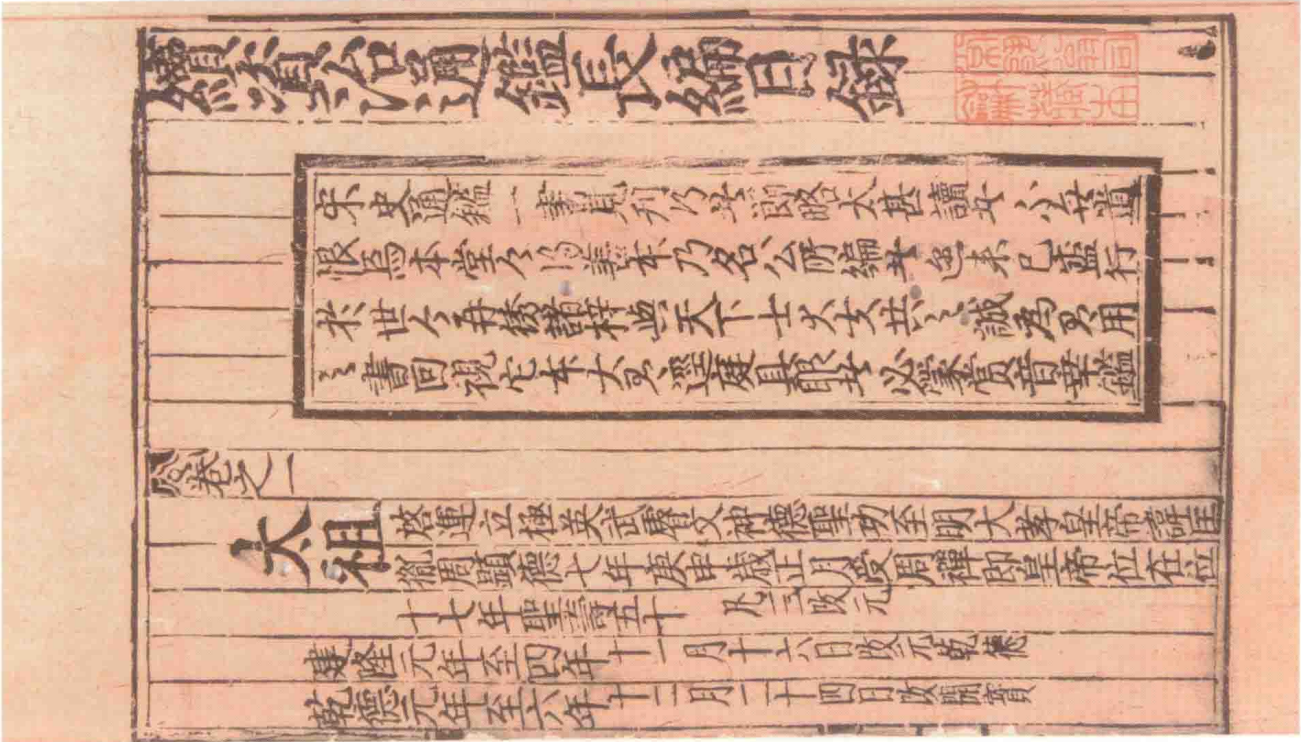 續資治通鑑長編目錄
宋史通鑑一書見刊行者節略太甚讀者不無遺
恨焉本堂今得善本乃名公所編者前宋已盛行
於世今再綉諸梓與天下士大夫共之誠為有用
之書回視它本大有逕庭具眼者必蒙賞音幸鑑
卷之一
太祖 啓運立極英武睿文神德聖功至明大孝皇帝諱匡
胤周顯德七年庚申歲正月受周禪即皇帝位在位
十七年聖壽五十 凡三改元
建隆元年至四年十一月十六日改元乾德
乾德元年至六年十一月二十四日改開寶